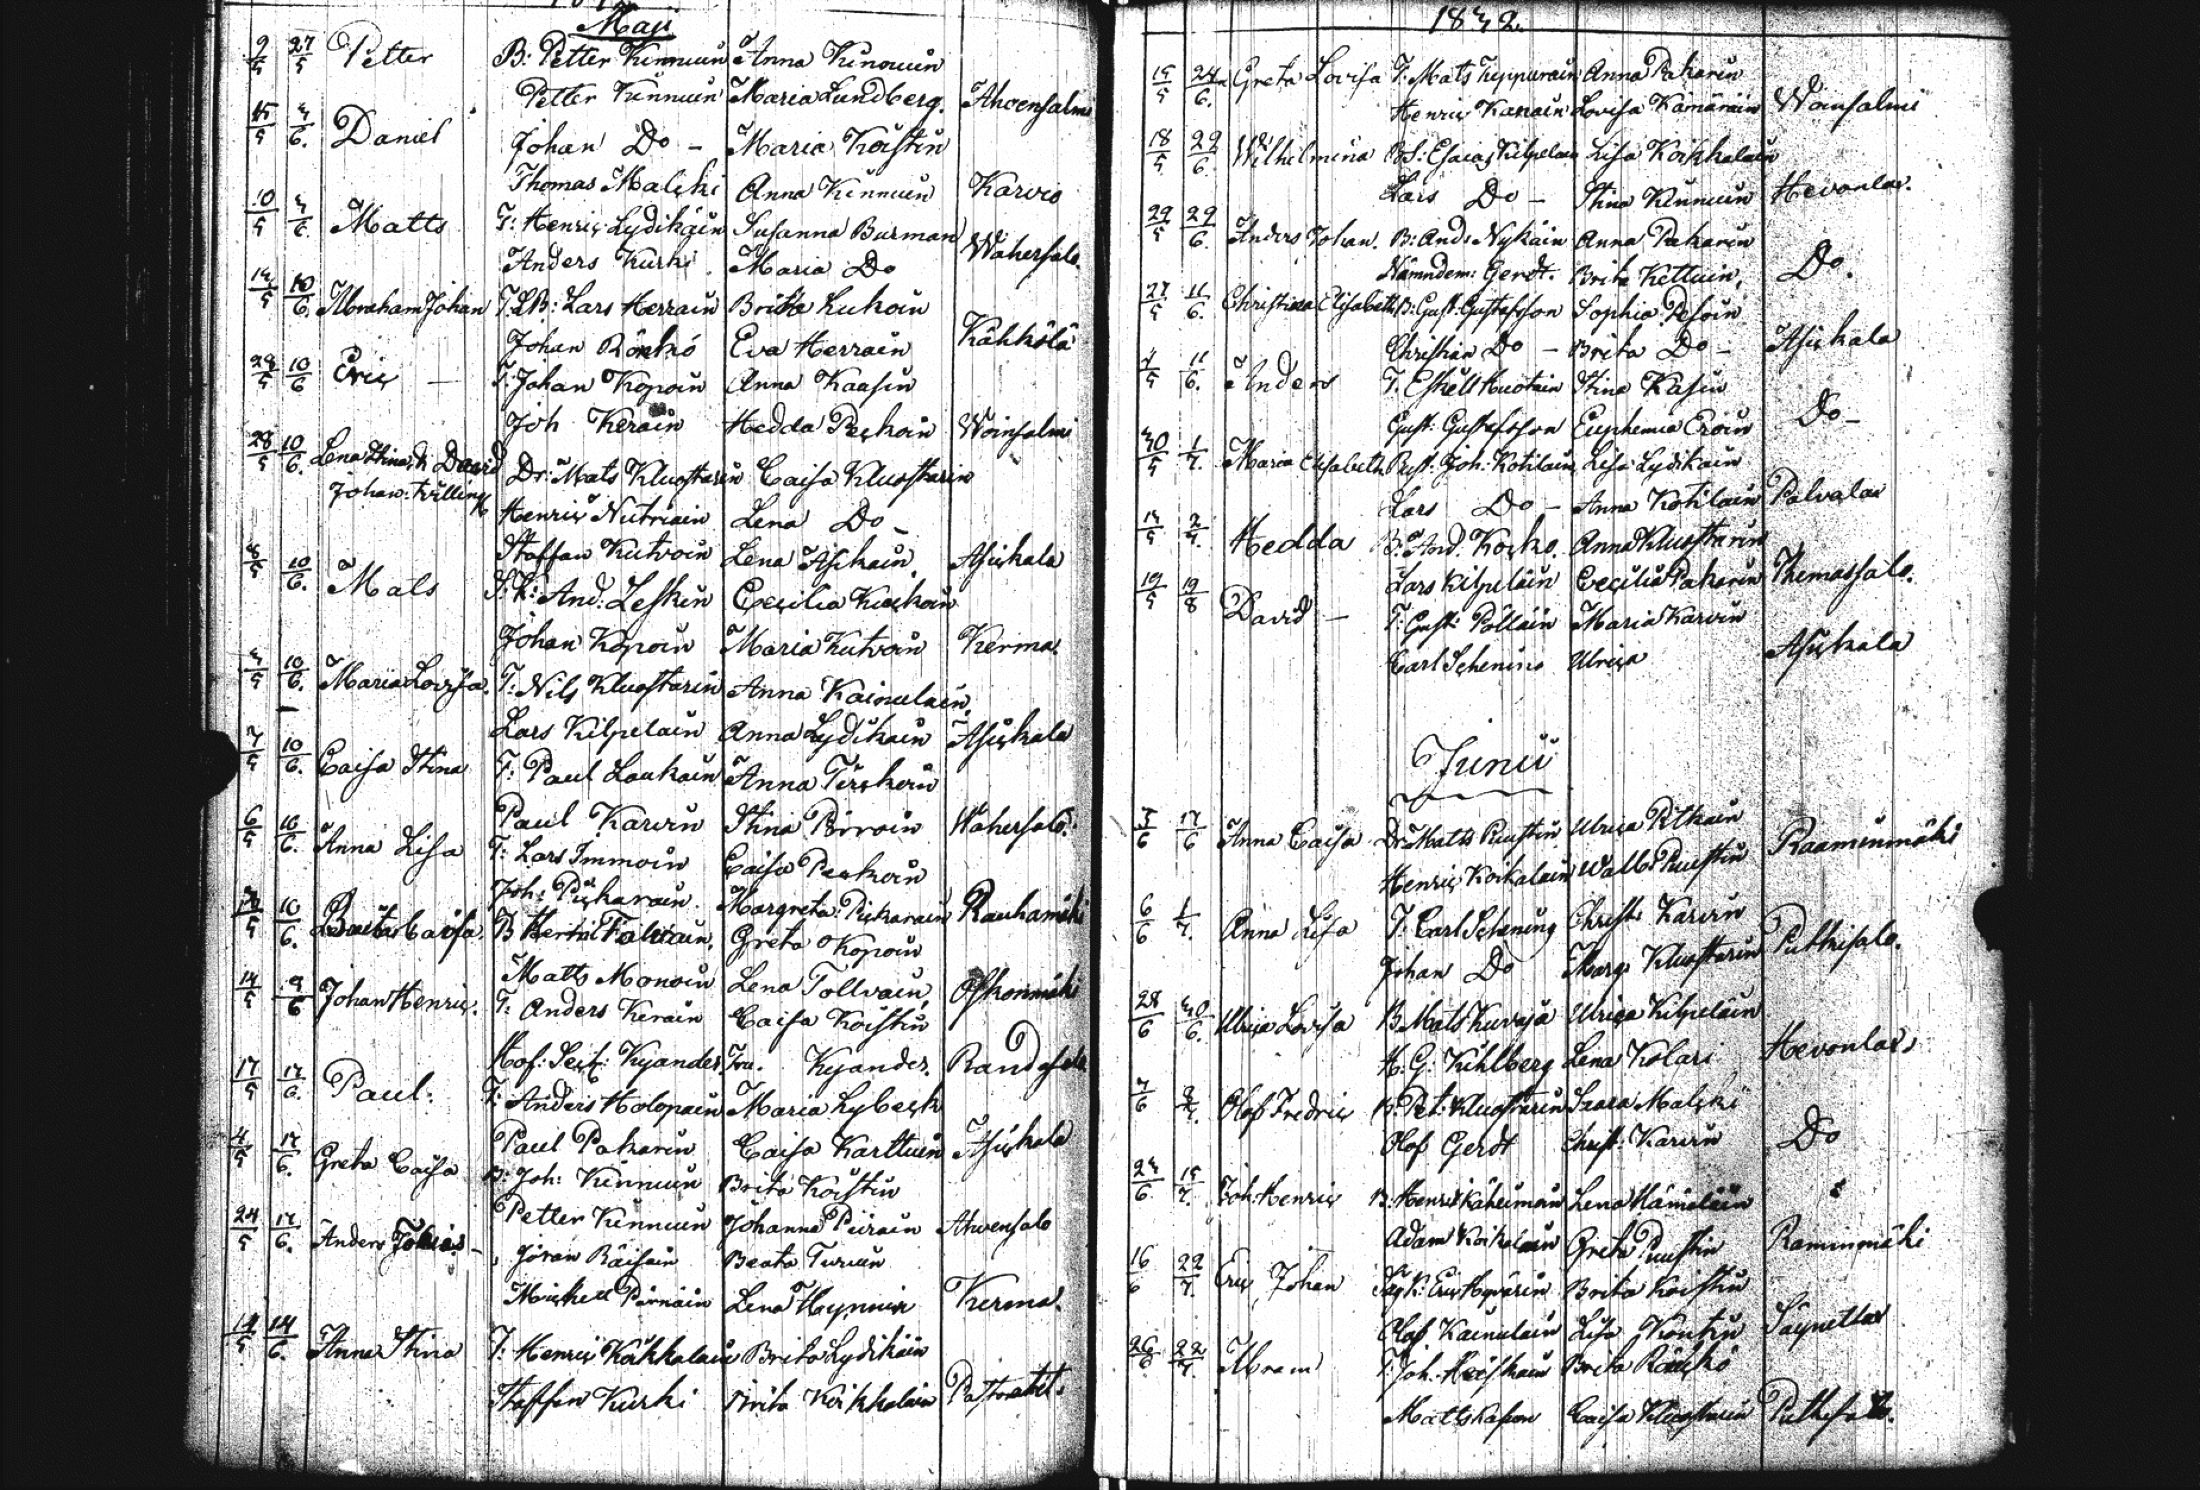 Maji
2/5 27/5 Petter B: Petter Kinnuin Anna Kinonuin
Petter Kinnuin Maria Lundberg. Ahvensalmi
15/5 4/6. Daniel Johan Do - Maria Köistin
Thomas Malski Anna Kinnuin Karvio
10/5 4/6. Matts T: Henric Lydikäin Susanna Burman
Anders Kurki Maria Do Wahersalo.
14/5 10/6. Abraham Johan T.LB: Lars Herrain Britta Lukoin
Johan Rönkö Eva Herrain Kähkölä
28/5 10/6 Eric — T: Johan Kopoin Anna Kaasin
Joh Keräin Hedda Peskoin Woinsalmi
28/5 10/6. Lena Stina, & David Dr: Mats Kluostarin Caisa Kluostarin
Johan: tvilling Henric Nutriain Lena Do -
Staffan Kutvoin Lena Asikain Asiskala
10/6. Mats And: Leskin Cecilia Kuoskoin
Johan Kopoin Maria Kutvoin Kerma
4/5 10/6. Maria Lovisa. T: Nils Kluostarin Anna Kainulain,
Lars Kilpelain Anna Lydikain Asiskala
7/5 10/6. Caisa Stina T: Paul Laukain Anna Tirskoin
Paul Karvin Stina Pörroin Wahersalo.
6/5 10/6. Anna Lisa T: Lars Immoin Caisa Peskoin
Joh: Piskarain. Margreta Piskarain Rauhamäki
10/6. Caisa. B Greta Kopoin
Matts Monoin Lena Tollvain, Oskonmäki
14/5 9/6 Johan Henric. T: Anders Keräin Caisa Köistin
Hof: Secr: Kyander Fru. Kyander. Randasalo
17/5 17/6. Paul. T: Anders Holopain Maria Lybeck
Paul Pakarin Caisa Karttuin Asiskala
4/5 17/6. Greta Caisa B: Joh: Kinnuin Brita Köistin
Petter Kinnuin Johanna Piirain Ahvensalo
24/5 17/6. Anders Tobias - Jöran Räisäin Beata Turuin
Mickell Pärnäin Lena Heynnin Kerma.
14/5 14/6. Anna Stina T: Henric Koikkalain Brita Lydikäin
Staffan Kurki Brita Koikkalain Pastoratet.
1842.
15/5 24/6. Greta Lovisa T: Mats Kuppurain Anna Pakarin
Henric Kanain Lovisa Kämäräin Woinsalmi
18/5 22/6. Wilhelmina BS: Esaias Kilpelain Lisa Koikkalain
Lars Do - Stina Kinnuin Hevonlax.
29/5 29/6. Anders Johan. B: And: Nykäin Anna Pakarin
Nämndem: Gerdt. Brita Kettuin, Do.
27/5 11/6. Christina Elisabeth B: Gust: Gustafsson Sophia Pesoin
Christian Do - Brita Do - Asiskala
11/6. Anders T. Eskell Huotain Stina Kasin
Gust: Gustafsson Euphemia Eroin Do -
30/5 1/7. Maria Elisabeth Joh: Kotilain Lisa Lydikain
Lars Do - Anna Kotilain Palvalax
14/5 2/7. Hedda B: And. Kosko. Anna Kluostarin
Lars Kilpeläin Cecilia Pakarin Thomassalo.
19/5 19/8 David - T: Gust: Pölläin Maria Karvin
Carl Schening Ulrica Asiskala
Junii
5/6 17/6 Anna Caisa Dr: Matts Puustin Ulrica Pitkäin
Henric Koikalain Walb: Puustin Raaminmäki
6/6 1/7. Anna Lisa T: Carl Schening Christ: Karvin
Johan Do Marg: Kluostarin Putkisalo.
28/6 30/6. Ulrica Lovisa B Mats Kuvaja Ulrica Kilpeläin
H: G: Kihlberg Lena Kolari Hevonlax
7/6 8/7. Olof Fredric B: Pet: Kluostarin Szara Malski
Olof Gerdt Christ: Karvin Do
24/6 15/7. Joh: Henric B. Henric Käheimäin Lena Hämäläin
Adam Koikalain Greta Puustin Raminmäki
16/6 22/7. Eric Johan Eric Hyvärin Brita Köistin
Olof Kainulain Lisa Kontin Säynetlax
26/6 22/7. Abram T: Joh. Heiskain Brita Rönkö
Matts Kason Caisa Kluostarin Putkisalo.